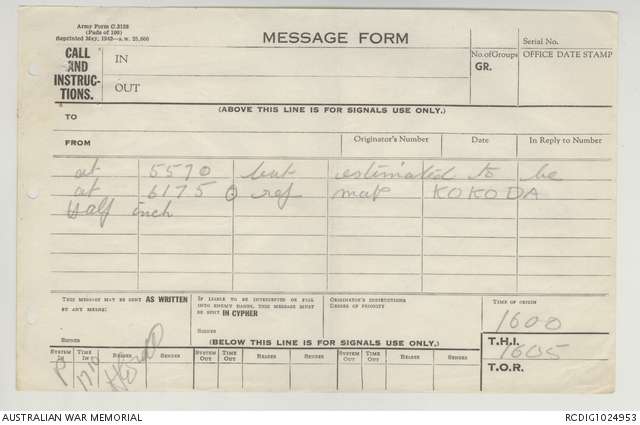 Army Form C.2128
(Pads of 100)
Reprinted May, 1942—s.w. 25,000
MESSAGE FORM
Serial No.
CALL
AND
INSTRUC-
TIONS.
IN
OUT
No. of Groups
GR.
OFFICE DATE STAMP
(ABOVE THIS LINE IS FOR SIGNALS USE ONLY.)
TO
FROM
Originator's Number
Date
In Reply to Number
at 5570 but estimated to be
at 6175 ref map KOKODA
half inch
THIS MESSAGE MAY BE SENT AS WRITTEN
BY ANY MEANS:
SIGNED
IF LIABLE TO BE INTERCEPTED OR FALL
INTO ENEMY HANDS, THIS MESSAGE MUST
BE SENT IN CYPHER
SIGNED
ORIGINATOR'S INSTRUCTIONS
DEGREE OF PRIORITY
TIME OF ORIGIN
1600
(BELOW THIS LINE IS FOR SIGNALS USE ONLY.)
T.H.I.
1605
T.O.R.
SYSTEM IN
TIME IN
READER
SENDER
SYSTEM OUT
TIME OUT
READER
SENDER
SYSTEM OUT
TIME OUT
READER
SENDER
P
AUSTRALIAN WAR MEMORIAL
RCDIG1024953